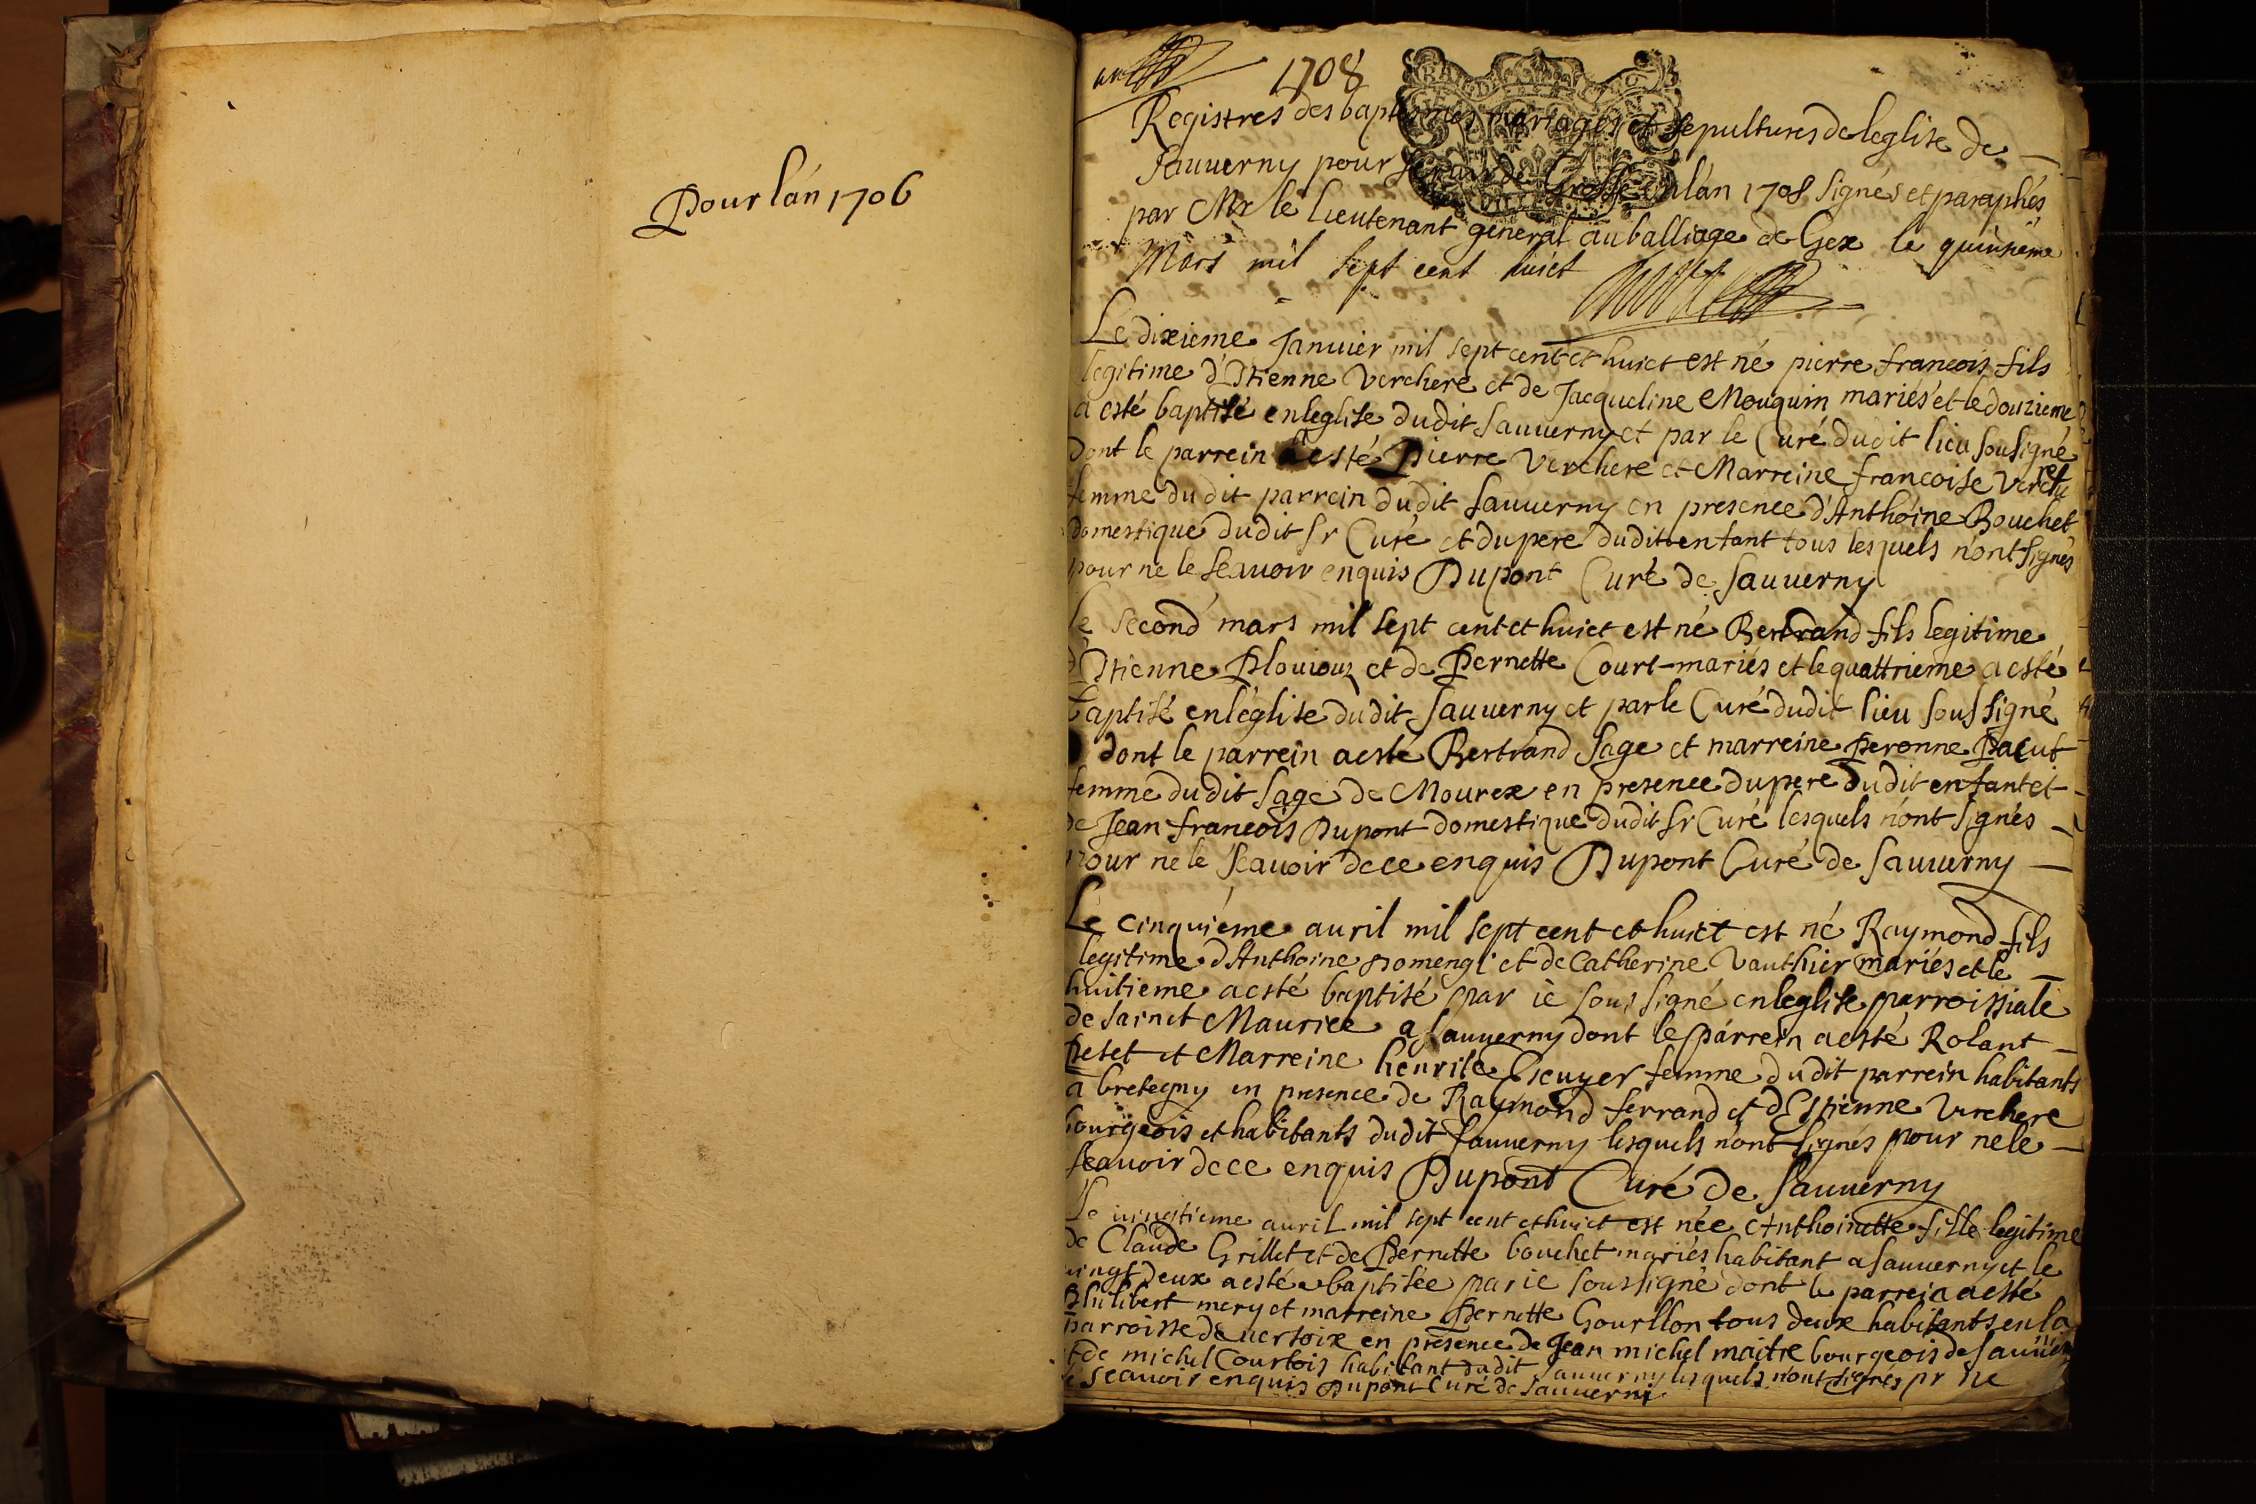 Pour lán 1706
1708
Registres des baptesmes mariages et sepultures de leglise de
Sauuerny pour seruir de Greffe en lán 1708 signés et paraphés
par Mr le lieutenant general au balliage de Gex le quinsieme
Mars mil sept cent huict
Le dixieme Januier mil sept cent et huict est né pierre francois fils
legitime d'Etienne Verchere et de Jacqueline Mouquin mariés et le douzieme
a esté baptisé en leglise dudit Sauuerny et par le Curé dudit lieu sousigné
dont le parrein a esté Pierre Verchere et Marreine francoise
femme dudit parrein dudit Sauuerny en presence d'Anthoine Bouchet
domestique dudit Sr Curé et du pere dudit enfant tous lesquels nónt signés
pour ne le scauoir enquis Dupont Curé de Sauuerny
le second mars mil sept cent et huict est né Bertrand fils legitime
d'Etienne Plouiouz et de Pernette Court mariés et le quattrieme a esté
baptisé en léglise dudit Sauuerny et par le Curé dudit lieu soussigné
dont le parrein a esté Bertrand Sage et marreine Peronne Pacut
femme dudit Sage de Mourex en presence du pere dudit enfant et
de Jean francois Dupont domestique dudit Sr Curé lesquels nónt signés
pour ne le scauoir de ce enquis Dupont Curé de Sauuerny
Le cinquiéme auril mil sept cent et huict est né Raymond fils
legitime d'Anthoine et de Catherine Vauthier mariés et le
huitieme a esté baptisé par ie soussigné en leglise parroissiale
de Sainct Maurice a Sauuerny dont le parrein a esté Rolant
Petet et Marreine henrite Escuyer femme dudit parrein habitants
a bretegny en presence de Raymond ferrand et d'Estienne Verchere
bourgeois et habitants dudit Sauuerny lesquels nónt signés pour ne le
scauoir de ce enquis Dupont Curé de Sauuerny
Le uingtieme auril mil sept cent et huict est née Anthoinette fille legitime
de Claude Grillet et de Pernette bouchet mariés habitant a Sauuerny et le
uingt deux a esté baptisée par ie soussigné dont le parrein a esté
Philibert mery et marreine Pernette Gourllon tous deux habitants en la
parroisse de uersoix en presence de Jean michel maitre bourgeois de
et de michel Courtois habitant dudit Sauuerny lesquels nónt signés pr ne
le scauoir enquis Dupont Curé de Sauuerni